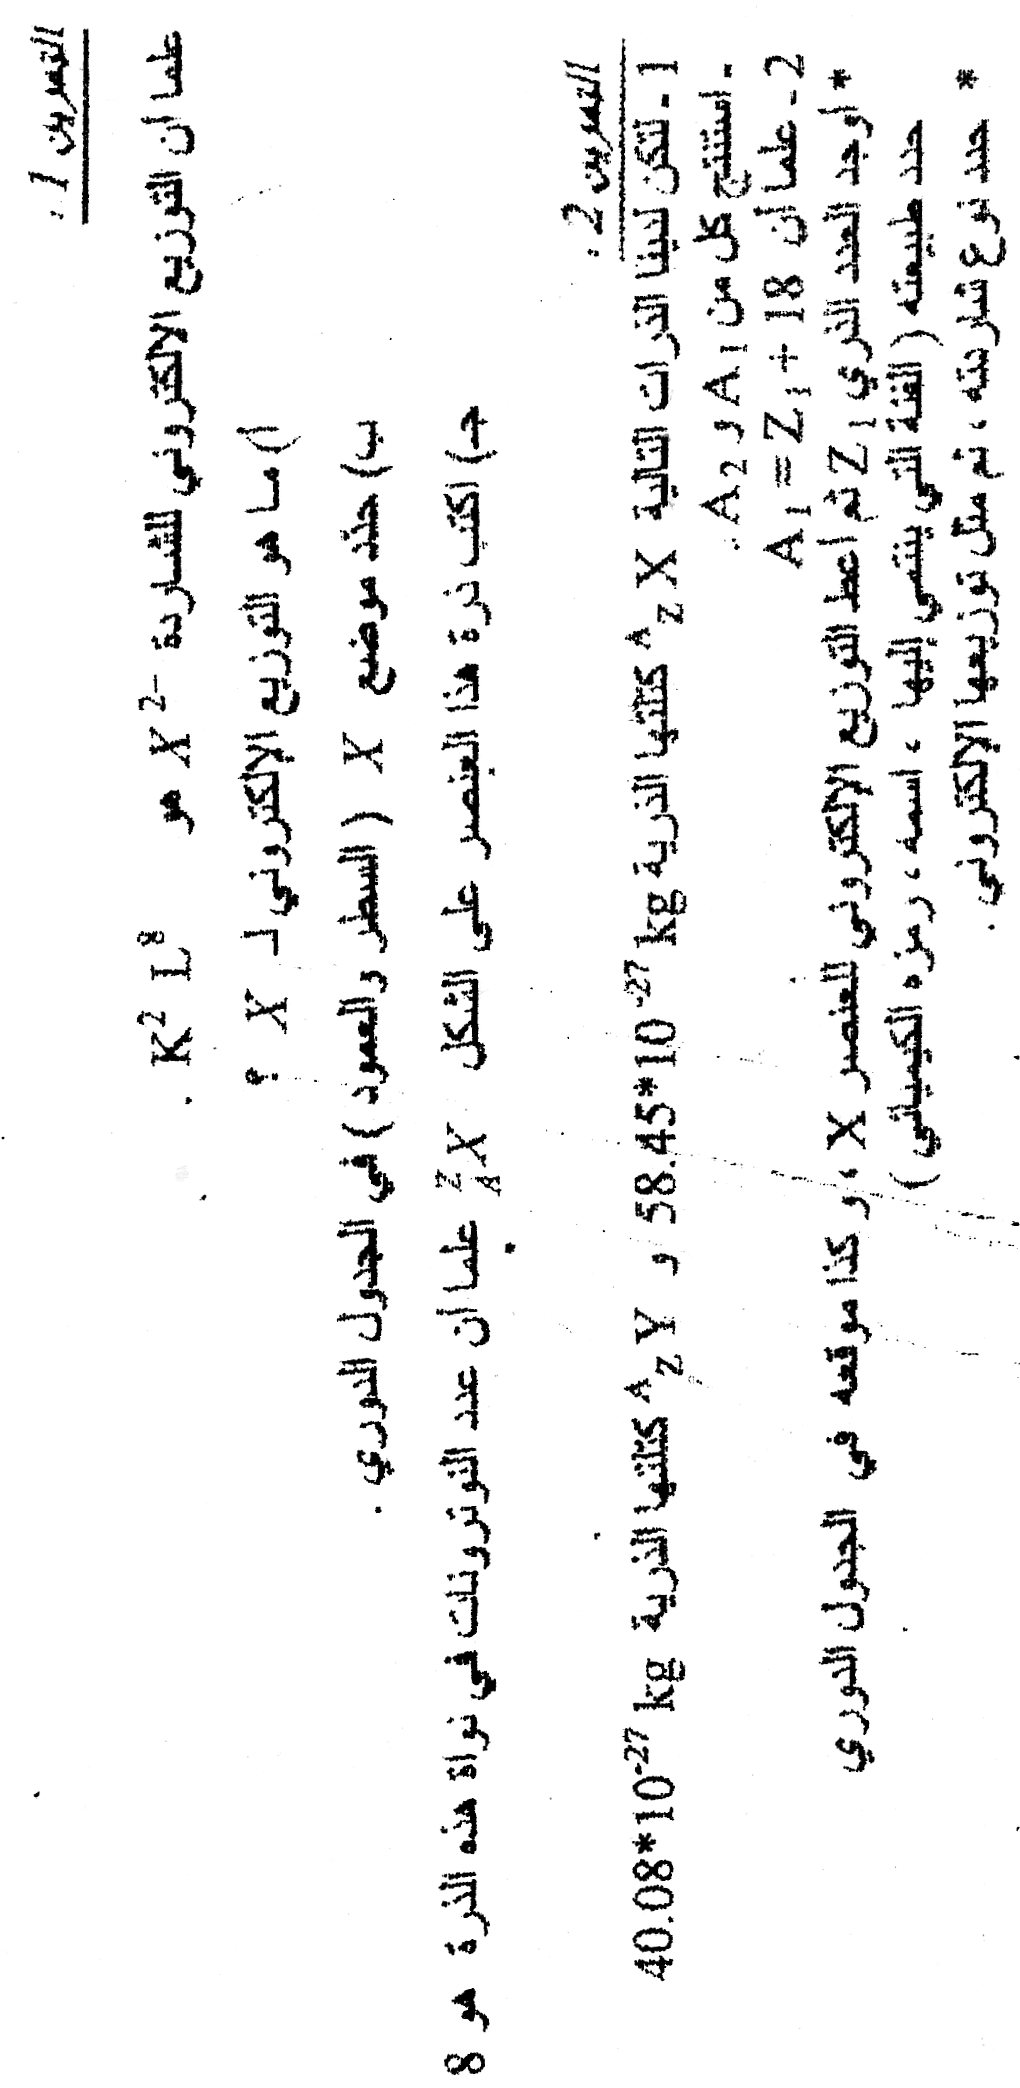 التمرين 1 :
علما أن التوزيع الالكتروني للشاردة X²⁻ هو K² L⁸ .
أ) ما هو التوزيع الإلكتروني لـ X ؟
ب) حدّد موضع X ( السطر والعمود ) في الجدول الدوري .
جـ) اكتب ذرة هذا العنصر على الشكل ᶻ_A X علما أن عدد النوترونات في نواة هذه الذرة هو 8
التمرين 2 :
1 - لتكن لدينا الذرات التالية ᴬ_Z X كتلتها الذرية 58.45*10⁻²⁷ kg و ᴬ_Z Y كتلتها الذرية 40.08*10⁻²⁷ kg
- استنتج كل من A₁ و A₂ .
2 - علما أن A₁ = Z₁ + 18
* أوجد العدد الذري Z₁ ثم أعط التوزيع الالكتروني للعنصر X ، و كذا موقعه في الجدول الدوري
حدد طبيعته ( الفئة التي ينتمي إليها ، اسمه ، رمزه الكيميائي )
* حدد نوع شاردته ، ثم مثل توزيعها الإلكتروني .